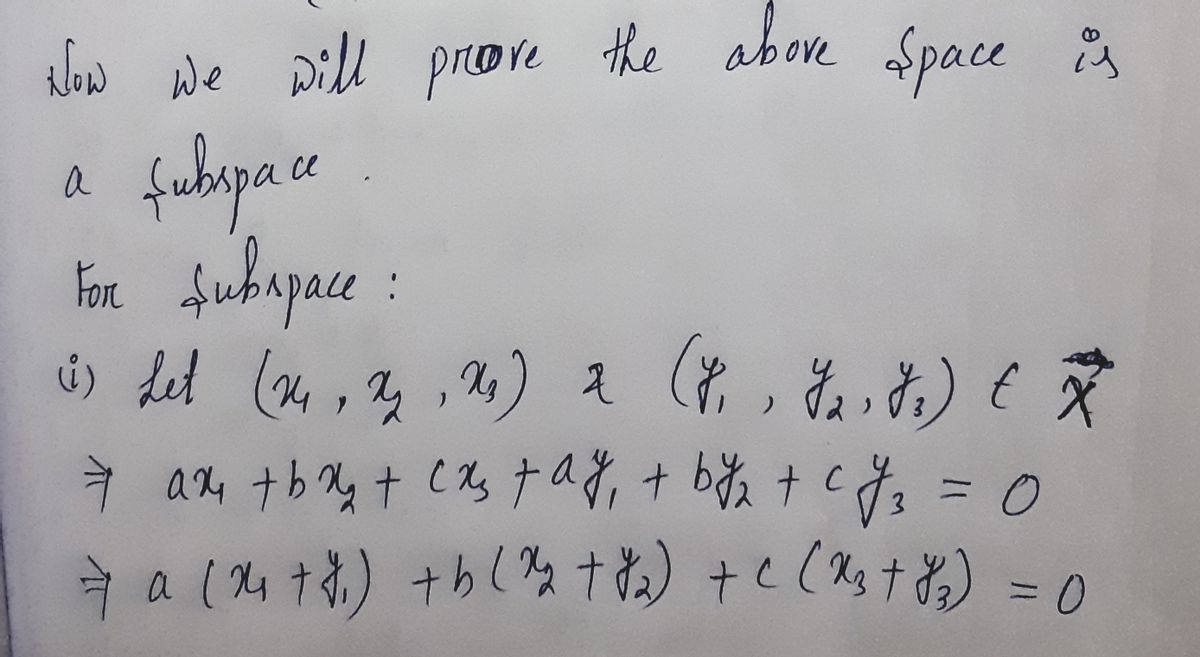 Now we will prove the above space is
a subspace.
For subspace:
(i) Let (x₁, x₂, x₃) & (y₁, y₂, y₃) ∈ X
⇒ ax₁ + bx₂ + cx₃ + ay₁ + by₂ + cy₃ = 0
⇒ a(x₁ + y₁) + b(x₂ + y₂) + c(x₃ + y₃) = 0